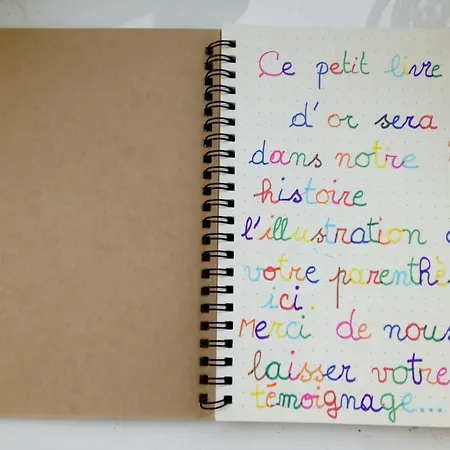 Ce petit livre
d'or sera
dans notre
histoire
l'illustration
votre parenthès
ici.
Merci de nous
laisser votre
témoignage...